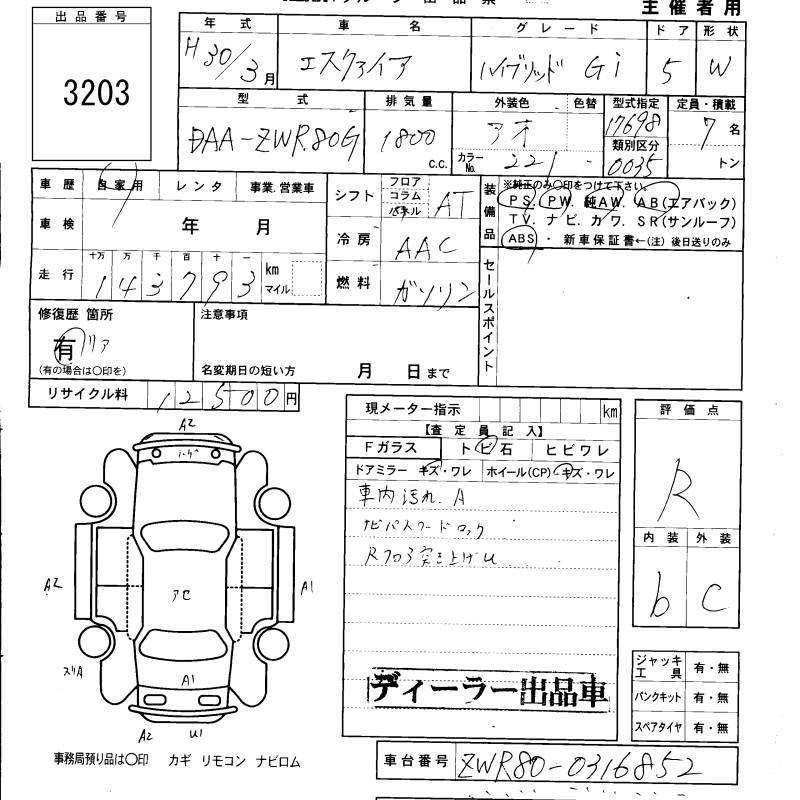 出品番号
3203
主催者用
年式 車名 グレード ドア 形状
H30/3月 エスクァイア ハイブリッド Gi 5 W
型式 排気量 外装色 色替 型式指定 定員・積載
DAA-ZWR80G 1800 c.c. アオ 17698 7名
カラーNo. 221 - 類別区分 0035 トン
車歴 自家用 レンタ 事業.営業車
車検 年 月
走行 十万 万 千 百 十 一
143793 km マイル
シフト フロア コラム パネル AT
冷房 AAC
燃料 ガソリン
装備品 ※純正のみ〇印をつけて下さい。
PS. PW. 純AW. AB(エアバック)
TV. ナビ. カワ. SR(サンルーフ)
ABS・新車保証書←(注)後日送りのみ
セールスポイント
修復歴 箇所
有 リア
(有の場合は〇印を)
注意事項
名変期日の短い方 月 日まで
リサイクル料 12500円
現メーター指示 km
【査定員記入】
Fガラス トビ石 ヒビワレ
ドアミラー キズ・ワレ ホイール(CP)-キズ・ワレ
車内汚れ. A
ナビパスワードロック
Rフロア突き上げU
ディーラー出品車
評価点
R
内装 外装
b C
ジャッキ工具 有・無
パンクキット 有・無
スペアタイヤ 有・無
A2
A2
A1
アセ
スリA
A1
A2
U1
事務局預り品は〇印 カギ リモコン ナビロム
車台番号 ZWR80-0316852